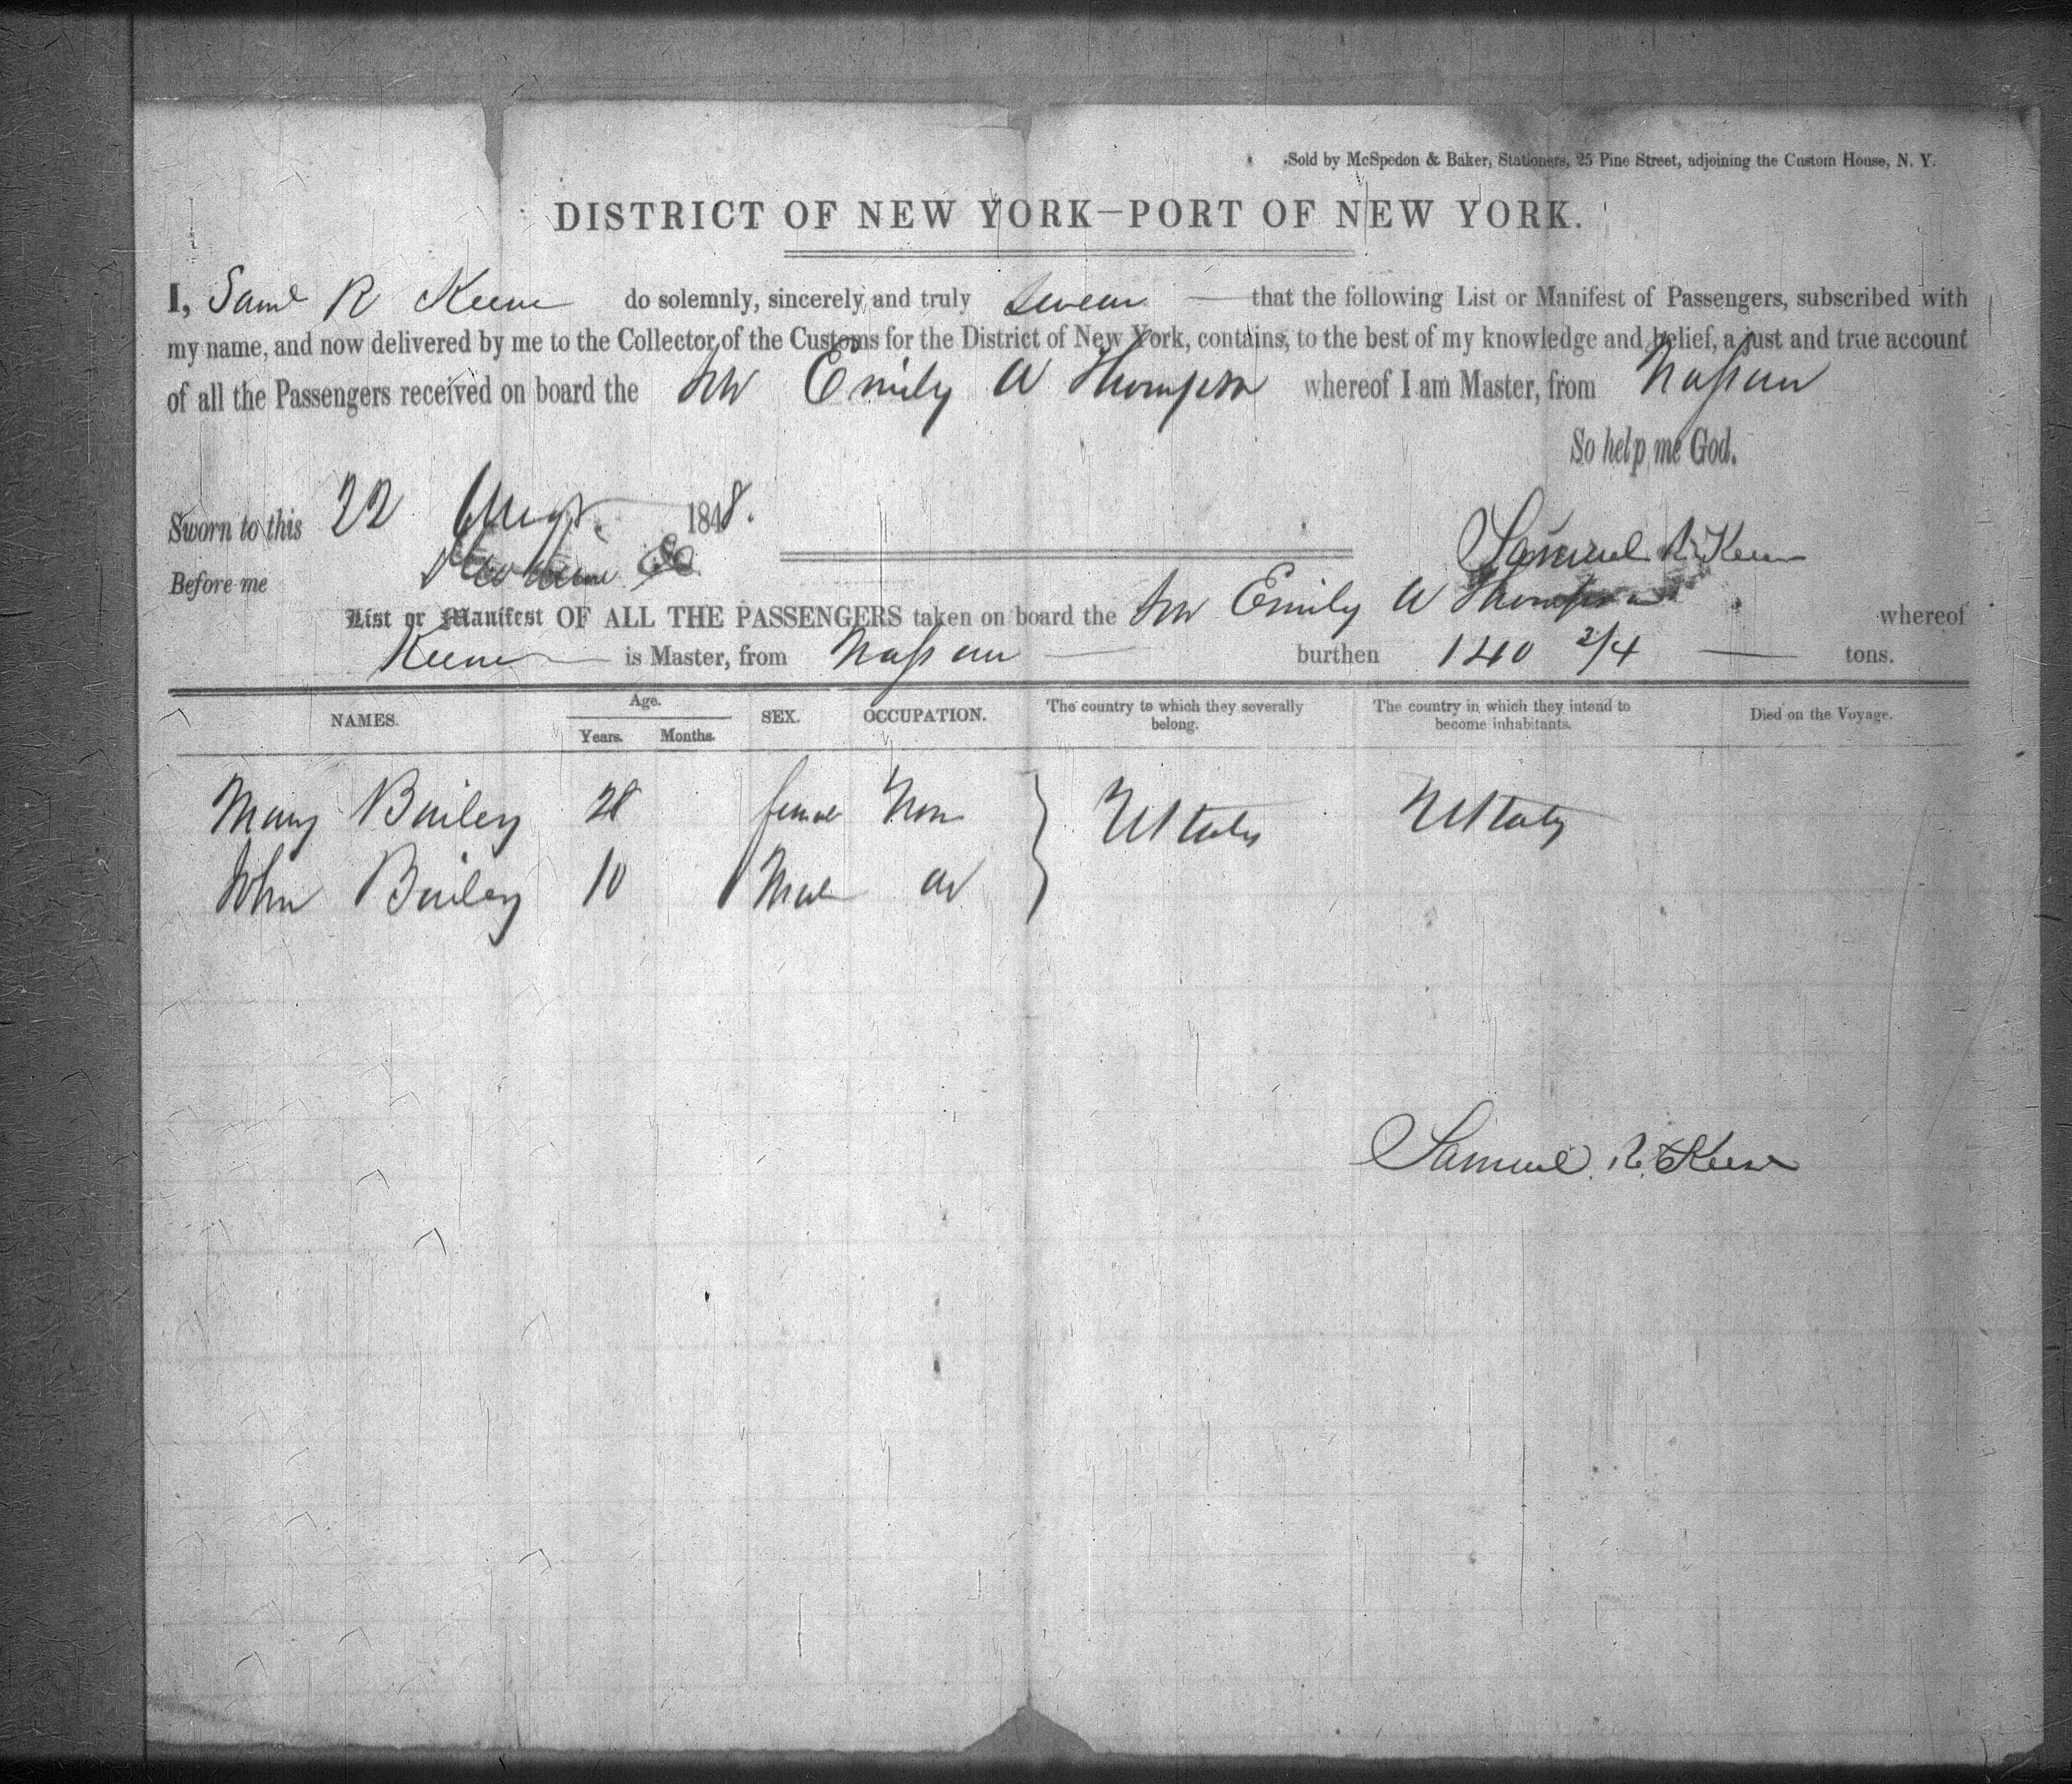 Sold by McSpedon & Baker, Stationers, 25 Pine Street, adjoining the Custom House, N. Y.
DISTRICT OF NEW YORK—PORT OF NEW YORK.
I, Saml R Keene do solemnly, sincerely and truly swear that the following List or Manifest of Passengers, subscribed with
my name, and now delivered by me to the Collector of the Customs for the District of New York, contains, to the best of my knowledge and belief, a just and true account
of all the Passengers received on board the Emily W Thompson whereof I am Master, from Nassau
So help me God.
Sworn to this 22 Augt. 1848.
Samuel R. Keene
Before me
List or Manifest OF ALL THE PASSENGERS taken on board the Emily W Thompson whereof
Keene is Master, from Nassau burthen 140 tons.
NAMES. Age. Years. Months. SEX. OCCUPATION. The country to which they severally belong. The country in which they intend to become inhabitants. Died on the Voyage.
Mary Bailey 28 female Non UStates UStates
John Bailey 10 Male
Samuel. R. Keene